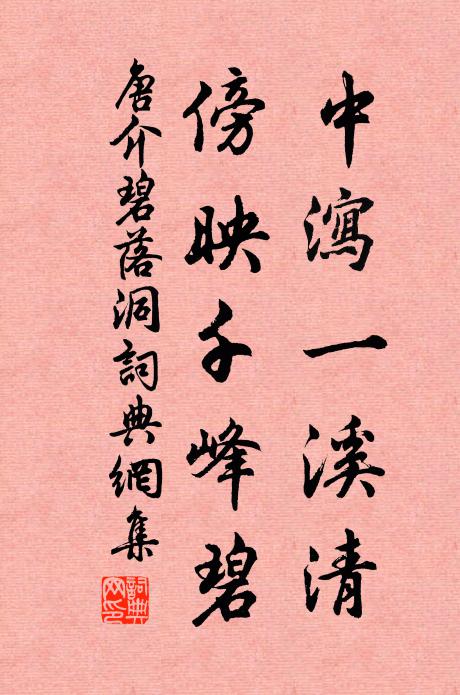 中瀉一溪清
傍映千峰碧
唐介碧落洞詞典網集
詞典網印